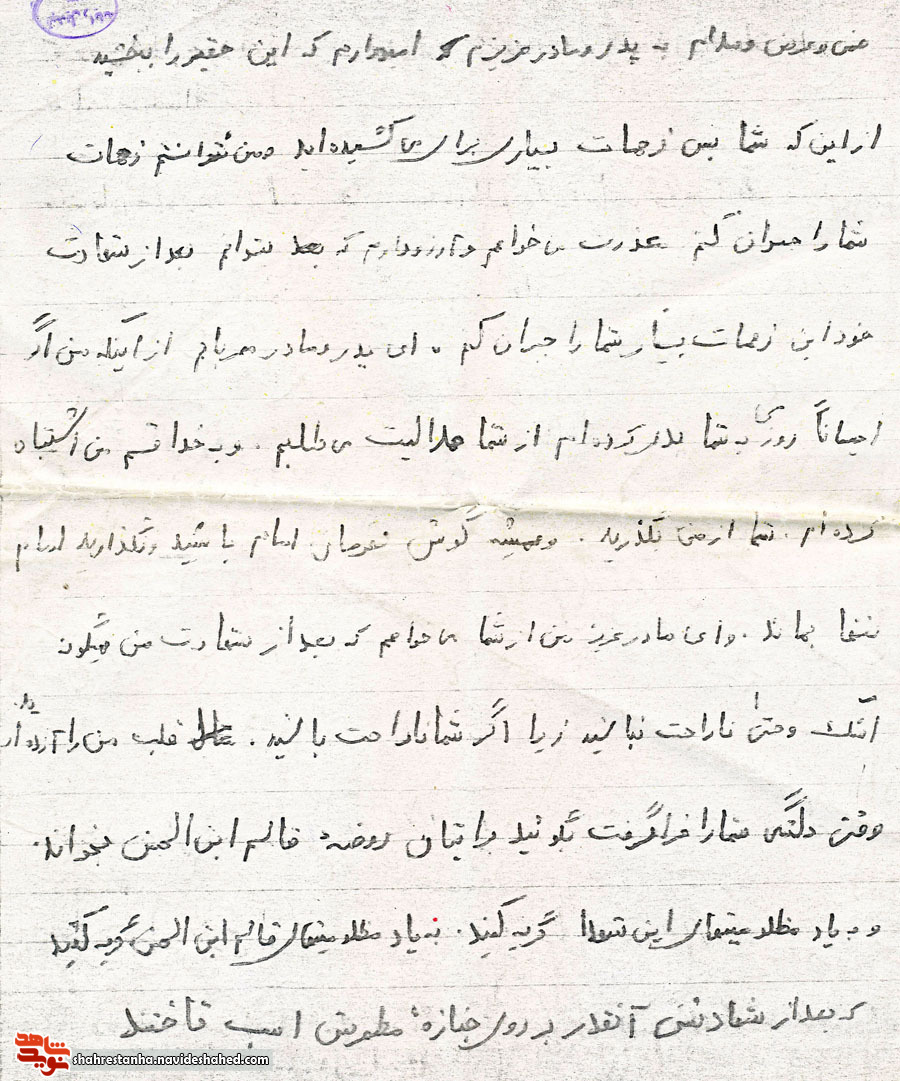 عرض و سلام به پدر و مادر عزیزم که امیدوارم که این حقیر را ببخشید
از این که شما بس زحمات بسیاری برای من کشیده‌اید و من نتوانستم زحمات
شما را جبران کنم معذرت می‌خواهم و آرزو دارم که بعد بتوانم بعد از شهادت
خود این زحمات بسیار شما را جبران کنم . ای پدر و مادر مهربانم از اینکه من اگر
احیاناً روزی به شما بدی کرده‌ام از شما حلالیت می‌طلبم . و به خدا قسم من اشتباه
کرده‌ام . شما از من بگذرید . و همیشه گوش فرمان امام باشید و نگذارید امام
تنها بماند . و ای مادر عزیز من از شما می‌خواهم که بعد از شهادت من هیچگونه
اشک و حتی ناراحت نباشید زیرا اگر شما ناراحت باشید . قلب من را آزرده‌اید
وقتی دلتنگی شما را فرا گرفت بگوئید برایتان روضهٔ قاسم ابن الحسن بخواند .
و به یاد مظلومیتهای این شهدا گریه کنید . به یاد مظلومیتهای قاسم ابن الحسن گریه کنید
که بعد از شهادتش آنقدر بر روی جنازهٔ مطهرش اسب تاختند
نوید شاهد
shahrestanha.navideshahed.com